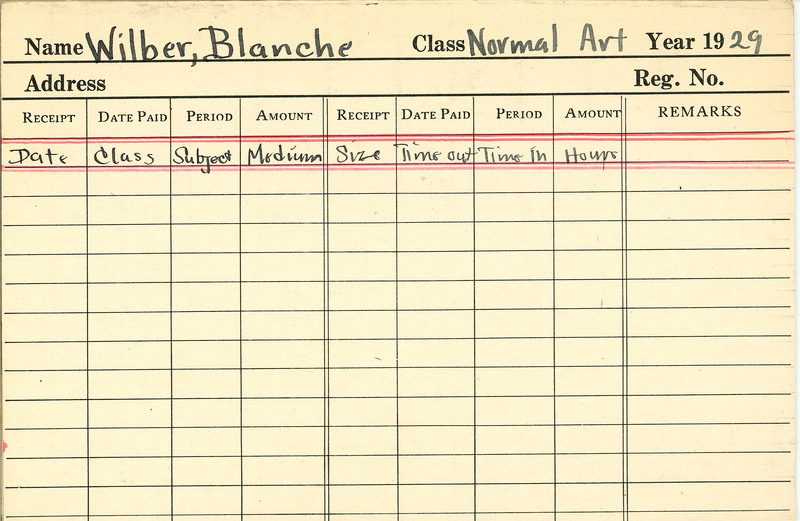 Name Wilber, Blanche Class Normal Art Year 1929
Address Reg. No.
RECEIPT DATE PAID PERIOD AMOUNT RECEIPT DATE PAID PERIOD AMOUNT REMARKS
Date Class Subject Medium Size Time out Time In Hours